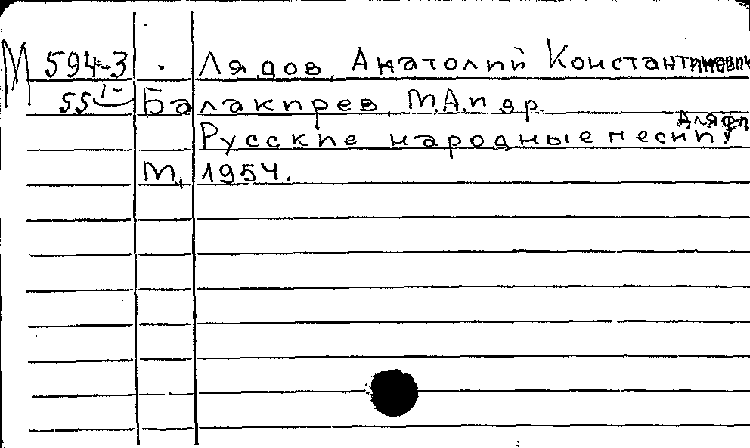 М 594-3 Лядов, Анатолий Константинович
55 1- Балакирев, М.А. и др.
Русские народные песни. Для фп
М., 1954.